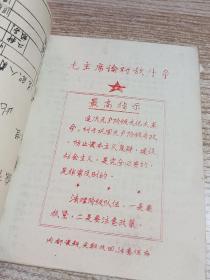 毛主席论对敌斗争
最高指示
这次无产阶级文化大革
命，对于巩固无产阶级专政，
防止资本主义复辟，建设
社会主义，是完全必要的，
是非常及时的。
清理阶级队伍，一是要
抓紧，二是要注意政策。
内部资料，定期收回，注意保存